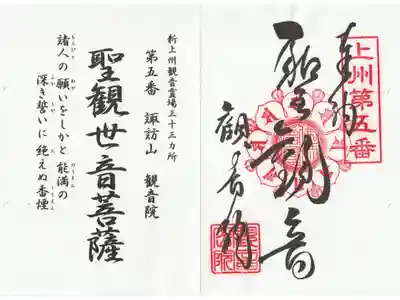 奉拝
上州第五番
聖観音
観音院
新上州観音霊場三十三カ所
第五番 諏訪山 観音院
聖観世音菩薩
諸人の願いをしかと能満の
深き誓いに絶えぬ香煙